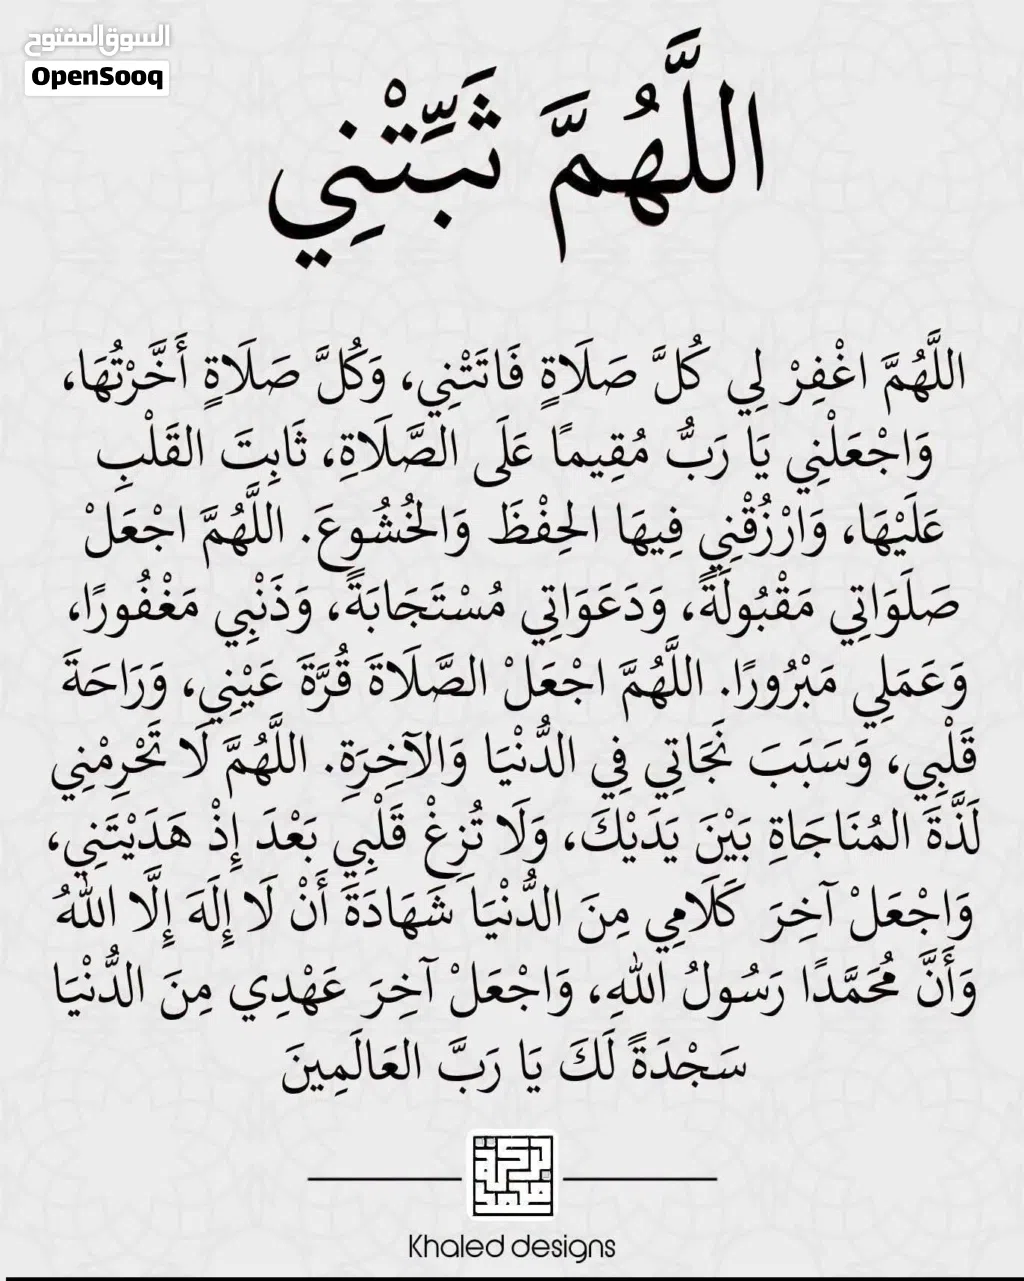 السوق المفتوح
OpenSooq
اللَّهُمَّ ثَبِّتْنِي
اللَّهُمَّ اغْفِرْ لِي كُلَّ صَلَاةٍ فَاتَتْنِي، وَكُلَّ صَلَاةٍ أَخَّرْتُهَا،
وَاجْعَلْنِي يَا رَبُّ مُقِيمًا عَلَى الصَّلَاةِ، ثَابِتَ القَلْبِ
عَلَيْهَا، وَارْزُقْنِي فِيهَا الحِفْظَ وَالخُشُوعَ. اللَّهُمَّ اجْعَلْ
صَلَوَاتِي مَقْبُولَةً، وَدَعَوَاتِي مُسْتَجَابَةً، وَذَنْبِي مَغْفُورًا،
وَعَمَلِي مَبْرُورًا. اللَّهُمَّ اجْعَلْ الصَّلَاةَ قُرَّةَ عَيْنِي، وَرَاحَةَ
قَلْبِي، وَسَبَبَ نَجَاتِي فِي الدُّنْيَا وَالآخِرَةِ. اللَّهُمَّ لَا تَحْرِمْنِي
لَذَّةَ المُنَاجَاةِ بَيْنَ يَدَيْكَ، وَلَا تُزِغْ قَلْبِي بَعْدَ إِذْ هَدَيْتَنِي،
وَاجْعَلْ آخِرَ كَلَامِي مِنَ الدُّنْيَا شَهَادَةَ أَنْ لَا إِلَهَ إِلَّا اللهُ
وَأَنَّ مُحَمَّدًا رَسُولُ اللهِ، وَاجْعَلْ آخِرَ عَهْدِي مِنَ الدُّنْيَا
سَجْدَةً لَكَ يَا رَبَّ العَالَمِينَ
Khaled designs